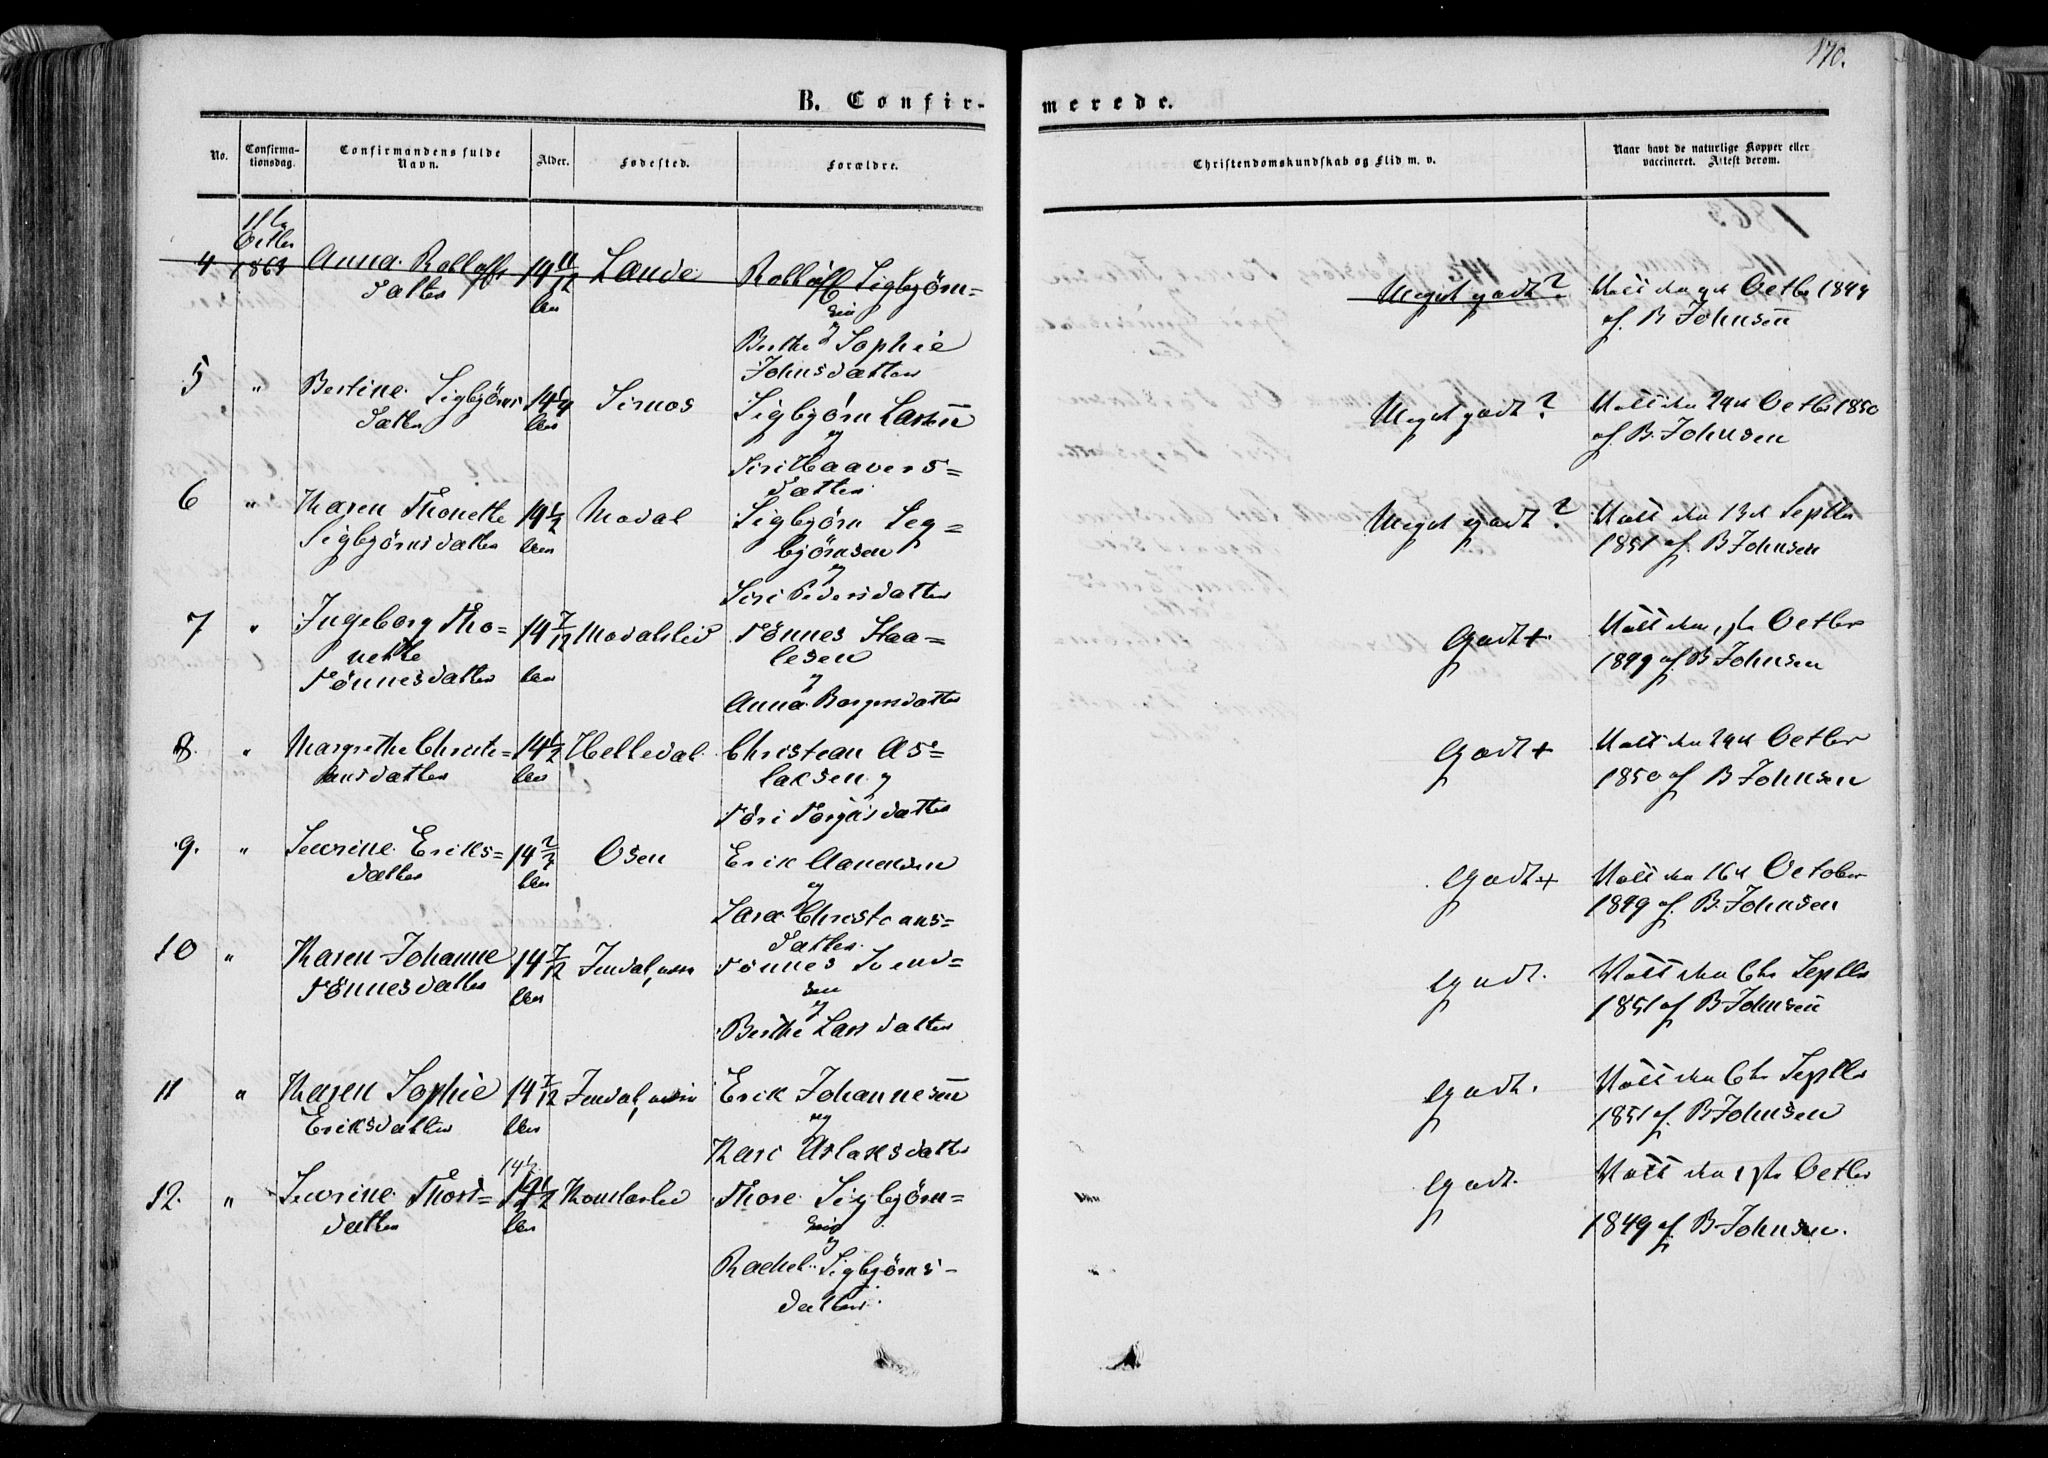 170.
B. Confir-
merede.
No.
Confirma-
tionsdag.
Confirmandens fulde
Navn.
Alder.
Fødested.
Forældre.
Christendomskundskab og Flid m. v.
Naar havt de naturlige Kopper eller
vaccineret. Attest derom.
4
Octbr
1863
Anna Rolloffs
datter
14 11/12
Lande
Rolloff Sigbjørn=
sen
og
Berthe Sophie
Johnsdatter
Meget godt?
Octbr 1849
af B Johnsen
5
"
Bertine Sigbjørns
datter
14 1/4
Sirnos
Sigbjørn Larsen
og
Siri Haavers=
datter
Meget godt?
Octbr 1850
af B. Johnsen
6
"
Karen Thonette
Sigbjørnsdatter
14 1/2
Modal
Sigbjørn Sig=
bjørnsen
og
Siri Pedersdatter
Meget godt?
Septbr
1851 af B Johnsen
7
"
Ingeborg Tho=
nette
Tönnesdatter
14 7/12
Modalslid
Tönnes Staa=
lesen
og
Anna Borgersdatter
Godt+
Octbr
1849 af B Johnsen
8.
"
Margrethe Christi=
ansdatter
14 1/2
Helledal
Christian As=
laksen og
Tóri Torgersdatter
Godt+
Octbr
1850 af B Johnsen
9.
"
Severine Eriks=
datter
14 2/3
Osen
Erik Aanensen
og
Sara Christians=
datter
Godt+
October
1849 af B. Johnsen
10
"
Karen Johanne
Tönnesdatter
14 7/12
Tönnes Svend=
sen
og
Berthe Larsdatter
Godt.
Septbr
1851 af B Johnsen
11
"
Karen Sophie
Eriksdatter
14 7/12
Erik Johannesen
og
Kari Aslaksdatter
Godt.
Septbr
1851 af B Johnsen
12.
"
Severine Thors=
datter
14 1/2
Thore Sigbjørn=
sen
og
Rachel Sigbjørns-
datter
Godt.
Octbr
1849 af B Johnsen.